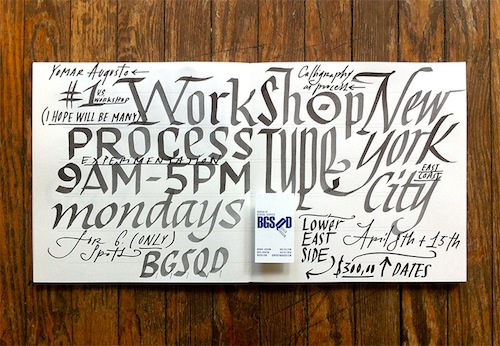 Yomar Augusto
#1 U.S. WORKSHOP
(I HOPE WILL BE MANY)
WorkShop New
Calligraphy
as process
PROCESS TYPE York
EXPERIMENTATION
9AM-5PM
EAST COAST
City
mondays
for 6 (ONLY)
Spots
BGSQD
BGSQD
Lower
EAST
SIDE
April 8th + 15th
$300,00 ↑ DATES